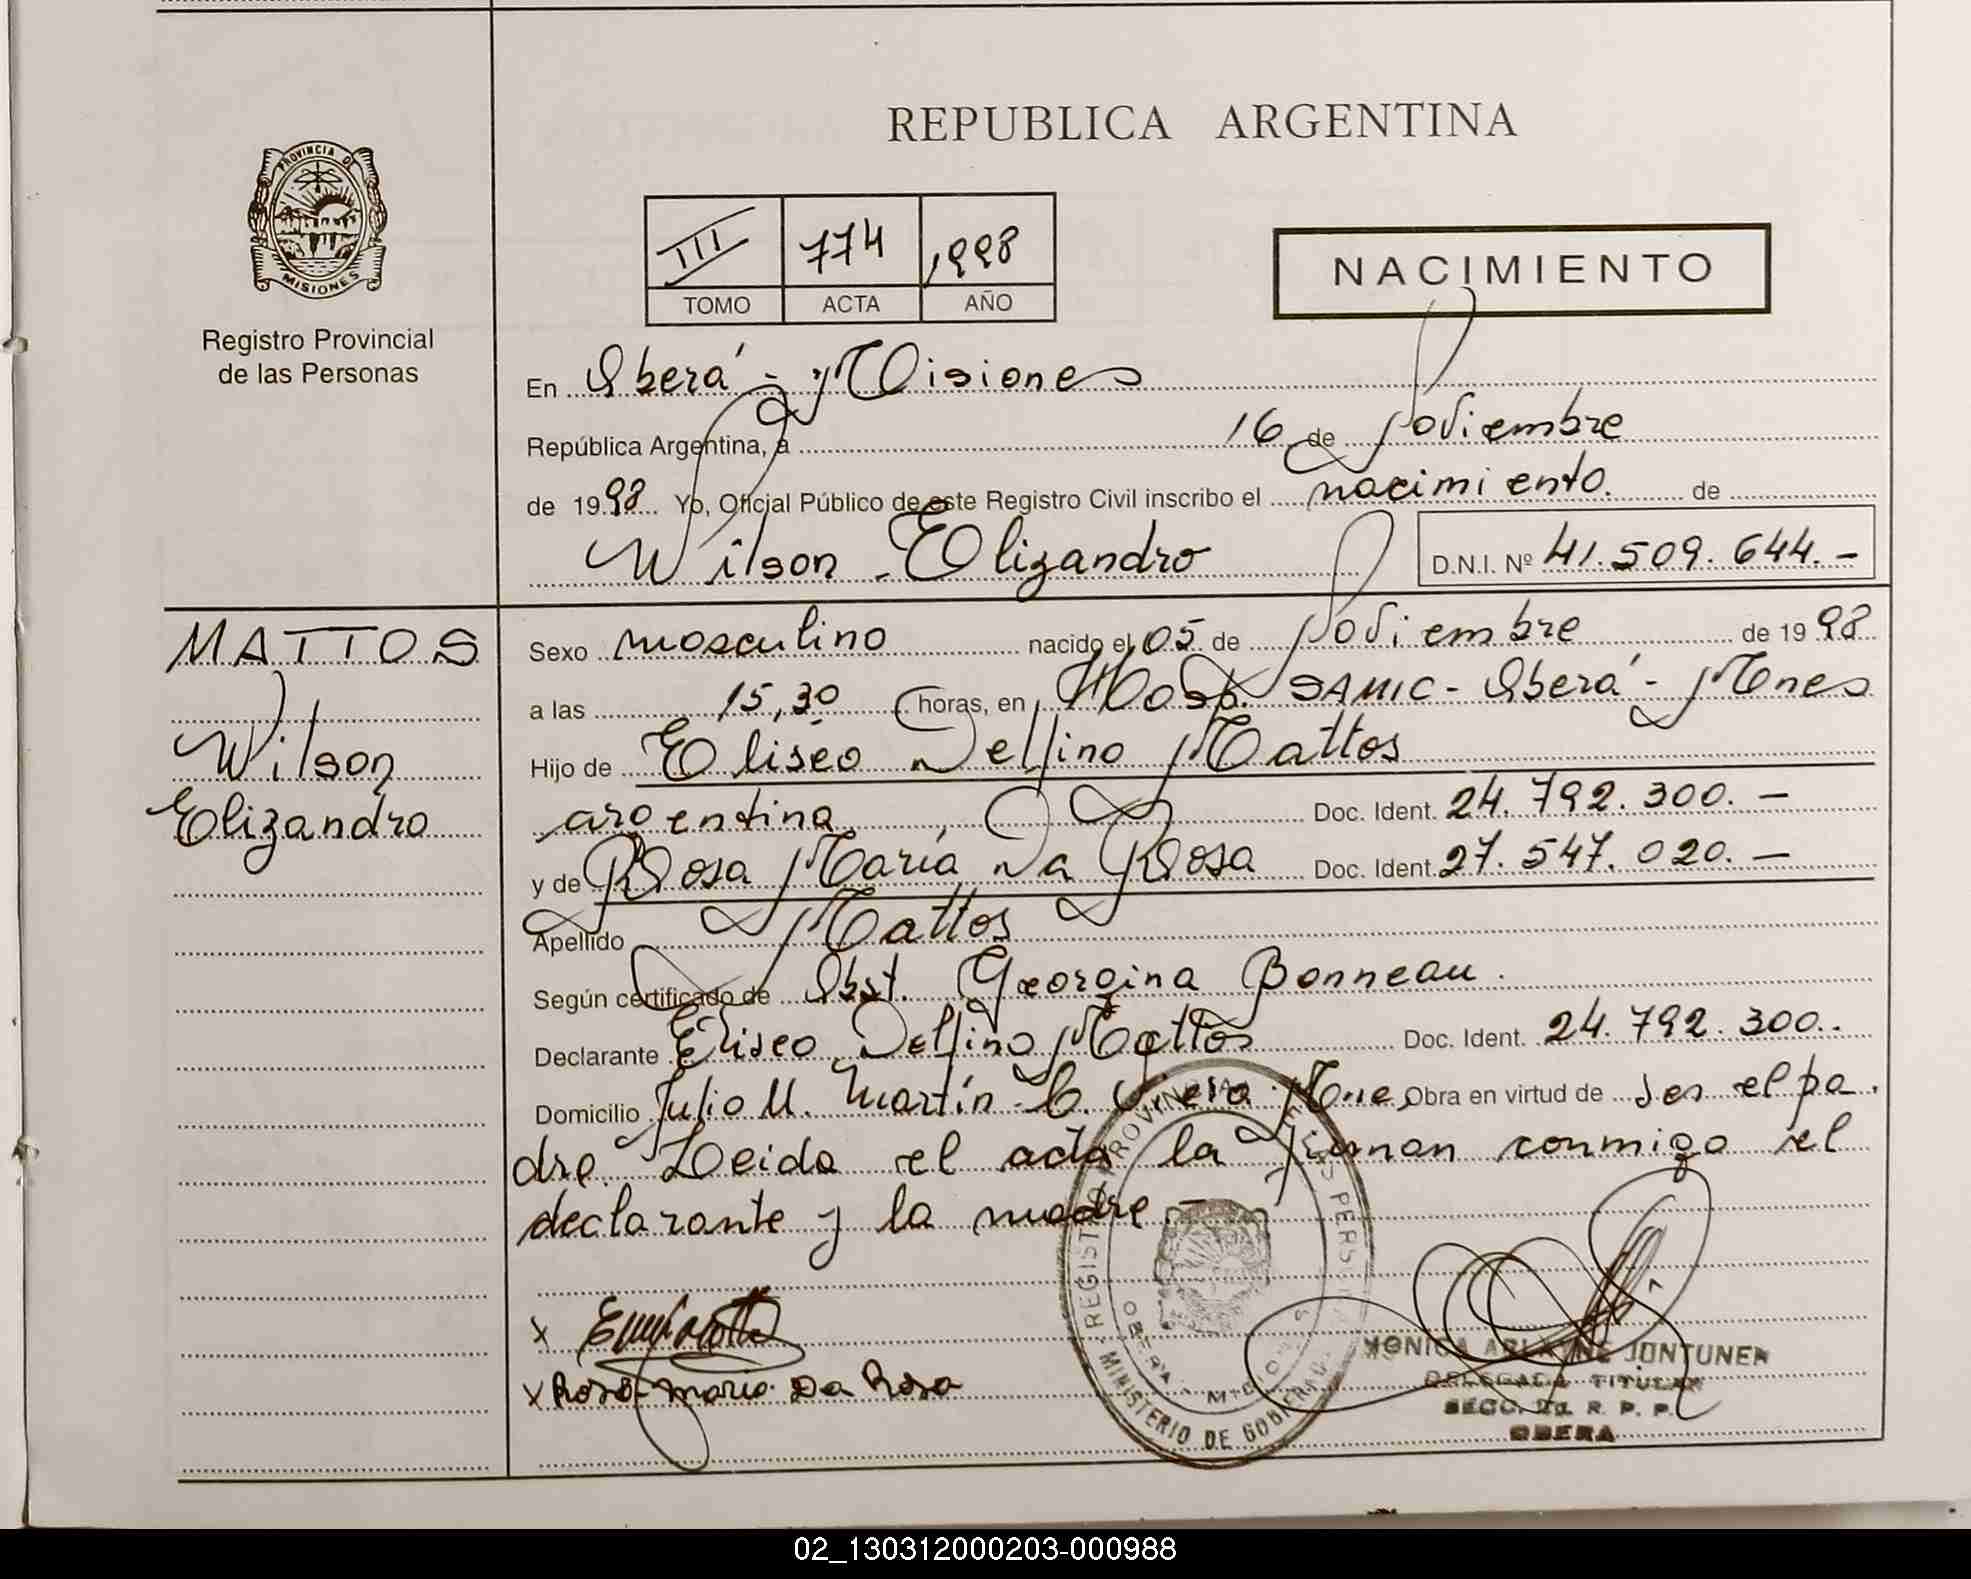 REPUBLICA ARGENTINA
PROVINCIA DE
MISIONES
Registro Provincial
de las Personas
III 774 1998
TOMO ACTA AÑO
NACIMIENTO
En Oberá - Misiones
República Argentina, a 16 de Noviembre
de 1998 Yo, Oficial Público de este Registro Civil inscribo el nacimiento. de
Wilson Elizandro D.N.I. Nº 41.509.644.-
MATTOS
Wilson
Elizandro
Sexo masculino nacido el 05 de Noviembre de 1998
a las 15,30 horas, en Hosp. SAMIC - Oberá - Mnes
Hijo de Eliseo Delfino Mattos
argentina, Doc. Ident. 24.792.300.-
y de Rosa María Da Rosa Doc. Ident. 27.547.020.-
Apellido Mattos
Según certificado de Obst. Georgina Bonneau.
Declarante Eliseo Delfino Mattos Doc. Ident. 24.792.300.-
Domicilio Julio U. Martín - C. Viera - Mnes Obra en virtud de ser el pa
dre. Leida el acta la firman conmigo el
declarante y la madre.-
x
x Rosa Maria Da Rosa
REGISTRO PROVINCIAL DE LAS PERSONAS
MINISTERIO DE GOBIERNO
OBERA - MISIONES
MONICA ARLAYNE JONTUNEN
DELEGADA TITULAR
SECC. 2da R. P. P.
OBERA
02_130312000203-000988